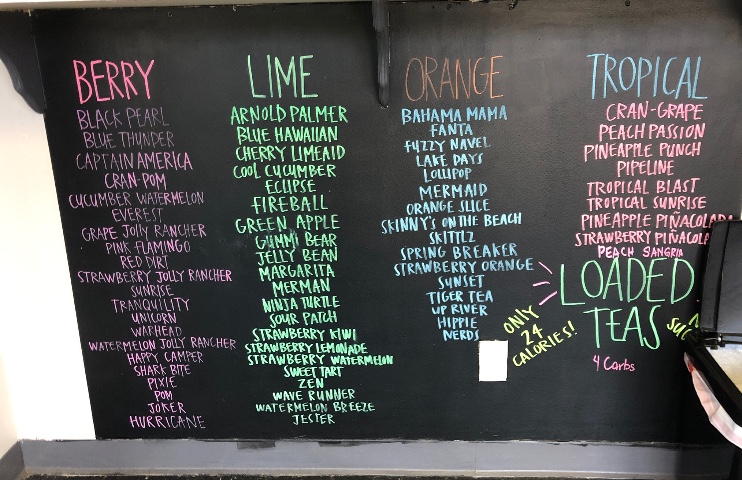 BERRY
BLACK PEARL
BLUE THUNDER
CAPTAIN AMERICA
CRAN-POM
CUCUMBER WATERMELON
EVEREST
GRAPE JOLLY RANCHER
PINK FLAMINGO
RED DIRT
STRAWBERRY JOLLY RANCHER
SUNRISE
TRANQUILITY
UNICORN
WARHEAD
WATERMELON JOLLY RANCHER
HAPPY CAMPER
SHARK BITE
PIXIE
POM
JOKER
HURRICANE
LIME
ARNOLD PALMER
BLUE HAWAIIAN
CHERRY LIMEAID
COOL CUCUMBER
ECLIPSE
FIREBALL
GREEN APPLE
GUMMI BEAR
JELLY BEAN
MARGARITA
MERMAN
NINJA TURTLE
SOUR PATCH
STRAWBERRY KIWI
STRAWBERRY LEMONADE
STRAWBERRY WATERMELON
SWEET TART
ZEN
WAVE RUNNER
WATERMELON BREEZE
JESTER
ORANGE
BAHAMA MAMA
FANTA
FUZZY NAVEL
LAKE DAYS
LOLLIPOP
MERMAID
ORANGE SLICE
SKINNY'S ON THE BEACH
SKITTLZ
SPRING BREAKER
STRAWBERRY ORANGE
SUNSET
TIGER TEA
UP RIVER
HIPPIE
NERDS
TROPICAL
CRAN-GRAPE
PEACH PASSION
PINEAPPLE PUNCH
PIPELINE
TROPICAL BLAST
TROPICAL SUNRISE
PINEAPPLE PIÑACOLADA
STRAWBERRY PIÑACOLA
PEACH SANGRIA
LOADED
TEAS
ONLY
24
CALORIES!
4 Carbs